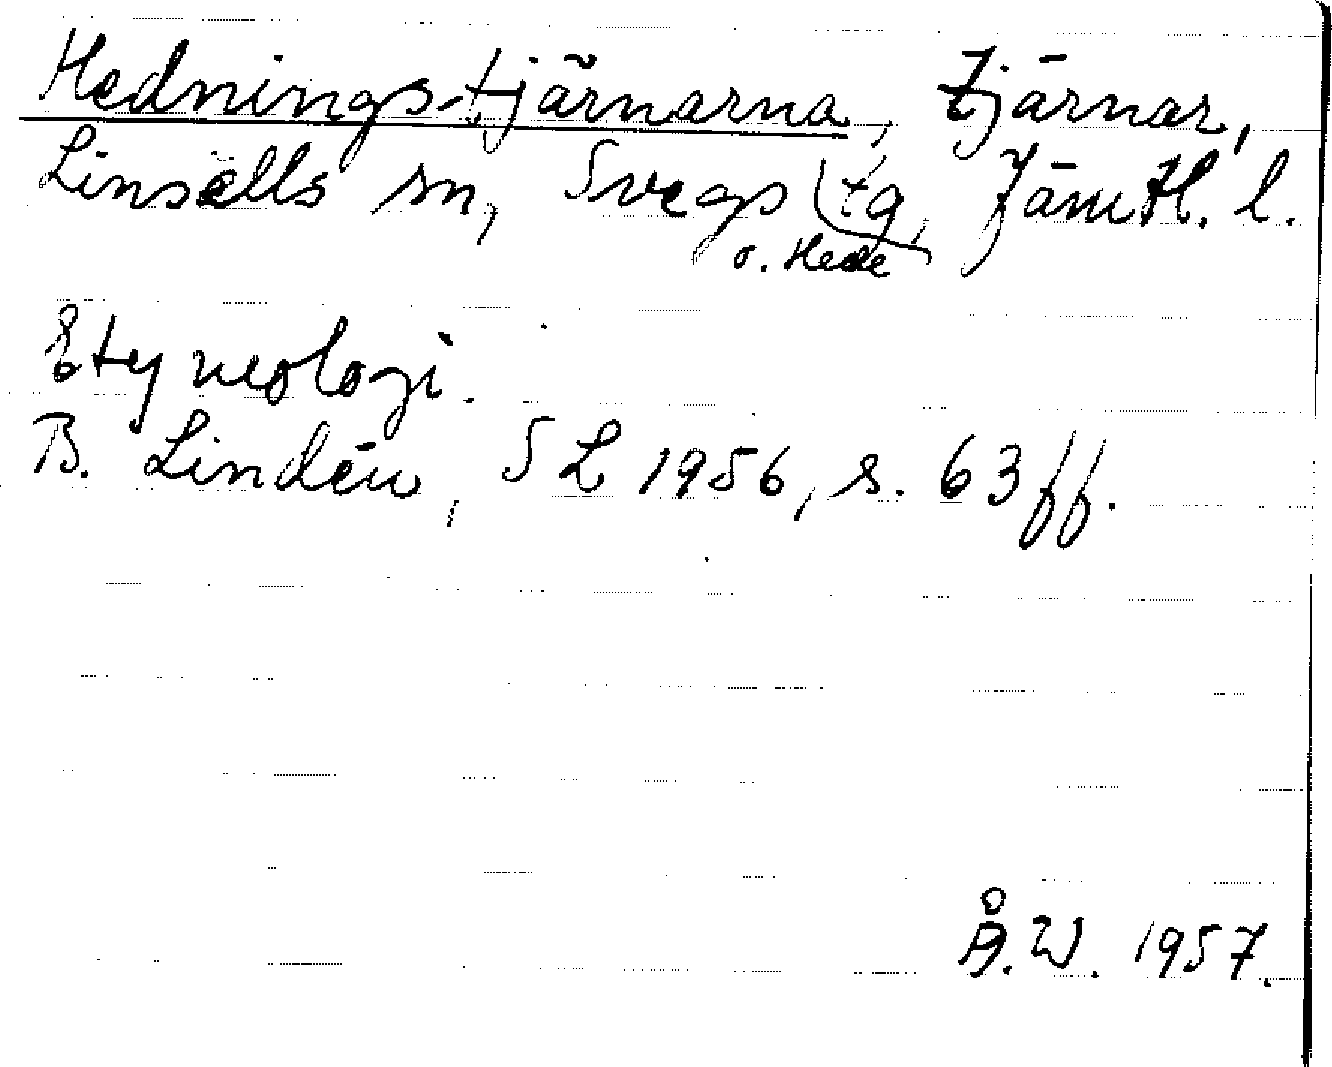 Hednings-tjärnarna, tjärnar,
Linsells sn, Svegs tg, Jämtl. l.
o. Hede
Etymologi.
B. Lindén, SL 1956, s. 63 ff.
Å.W. 1957.